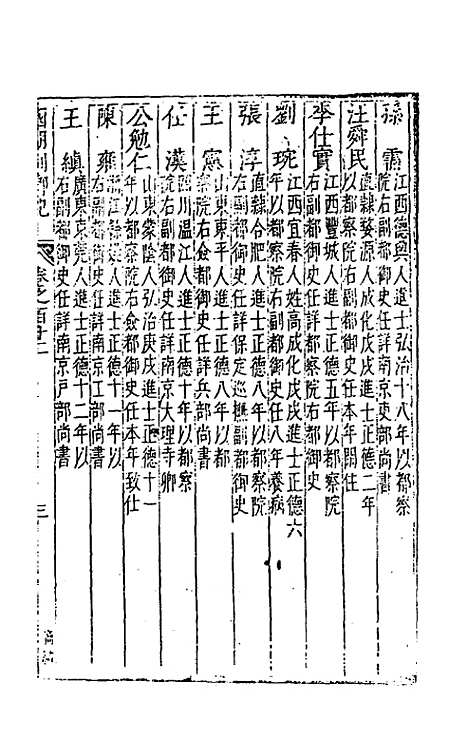 孫需 江西德興人進士弘治十八年以都察
院右副都御史任詳南京吏部尚書
汪舜民 直隸婺源人成化戊戌進士正德二年
以都察院右副都御史任本年閒住
李仕實 江西豐城人進士正德五年以都察院
右副都御史任詳都察院右都御史
劉琬 江西宜春人姓高成化戊戌進士正德六
年以都察院右副都御史任八年養病
張淳 直隸合肥人進士正德八年以都察院
右副都御史任詳保定巡撫副都御史
王憲 山東東平人進士正德八年以都
察院右僉都御史任詳兵部尚書
任漢 四川溫江人進士正德十年以都察
院右副都御史任詳南京大理寺卿
公勉仁 山東蒙陰人弘治庚戌進士正德十一
年以都察院右僉都御史任本年致仕
陳雍 浙江餘姚人進士正德十一年以
右副都御史任詳南京工部尚書
王縝 廣東東莞人進士正德十二年以
右副都御史任詳南京戶部尚書
國朝列卿紀 卷之百廿二 三